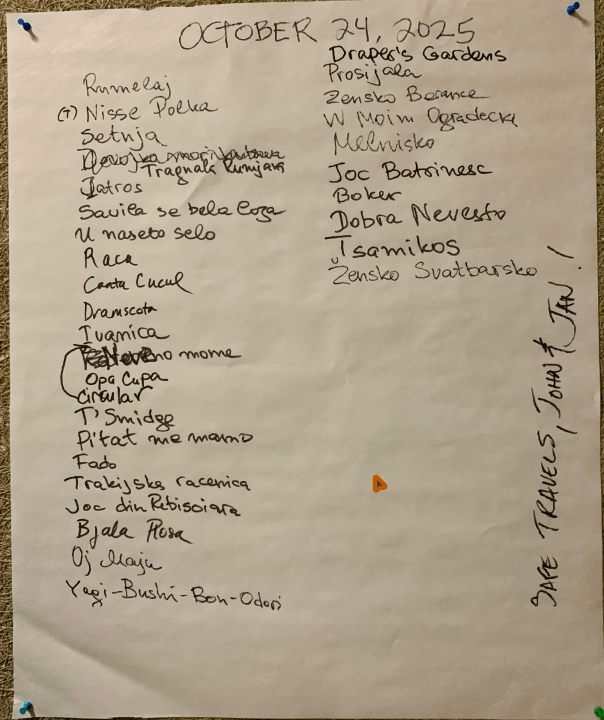 OCTOBER 24, 2025
Rumelaj
(T) Nisse Polka
Setnja
Tragnala Rumjana
Iatros
Savila se bela loza
U naseto selo
Raca
Canta Cucul
Dramscota
Ivanica
Neveno mome
Opa Cupa
Circular
T'Smidge
Pitat me mamo
Fado
Trakijska racenica
Joc din
Bjala Rosa
Oj Maju
Yagi-Bushi-Bon-Odori
Draper's Gardens
Prosijala
Zensko Berance
W Moim Ogradecku
Melnisko
Joc Batrinesc
Boker
Dobra Nevesto
Tsamikos
Zensko Svatbarsko
SAFE TRAVELS, JOHN & JAN!